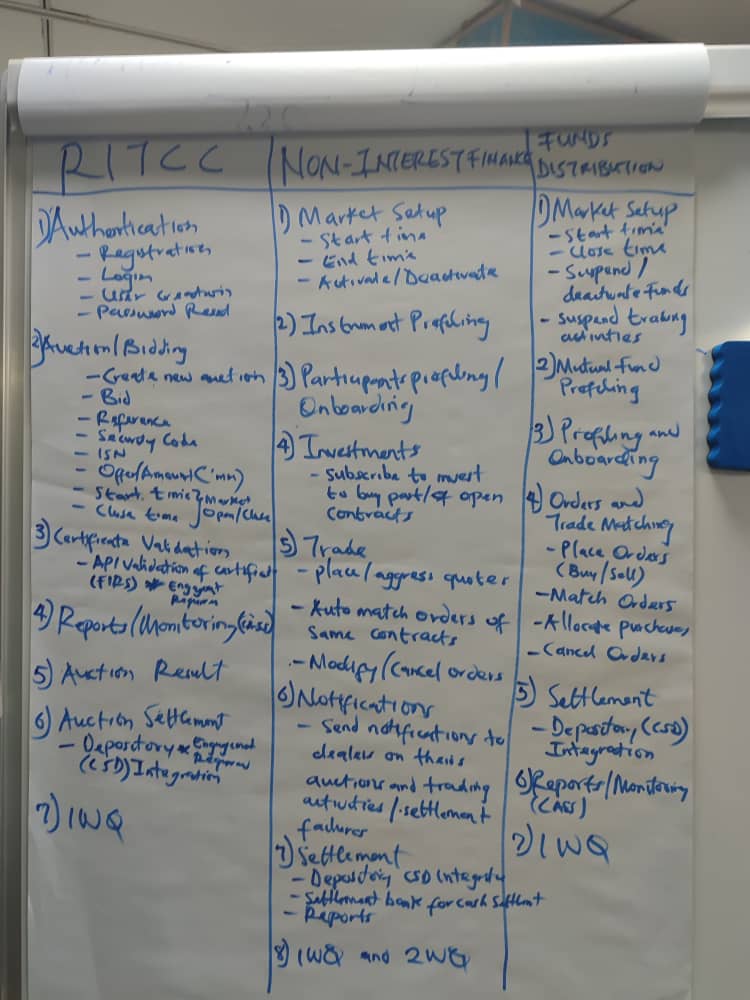 RITCC
1) Authentication
- Registration
- Login
- User Creation
- Password Reset
2) Auction/Bidding
- Create new auction
- Bid
- Reference
- Security Code
- ISN
- Offer/Amount ('mn)
- Start time } Market
- Close time } Open/Close
3) Certificate Validation
- API Validation of certificate
(FIRS) * Engagement
Required
4) Reports/Monitoring
5) Auction Result
6) Auction Settlement
- Depository * Engagement
(CSD) Integration Required
7) IWQ
NON-INTEREST FINANCE
1) Market Setup
- Start time
- End time
- Activate/Deactivate
2) Instrument Profiling
3) Participants profiling/
Onboarding
4) Investments
- Subscribe to invest
to buy part/of open
contracts
5) Trade
- place/aggress quotes
- Auto match orders of
same contracts
- Modify/Cancel orders
6) Notifications
- Send notifications to
dealers on their
auctions and trading
activities/settlement
failures
7) Settlement
- Depository CSD Integration
- Settlement bank for cash settlement
- Reports
8) IWQ and 2WQ
FUNDS
DISTRIBUTION
1) Market Setup
- Start time
- Close time
- Suspend/
deactivate funds
- suspend trading
activities
2) Mutual Fund
Profiling
3) Profiling and
Onboarding
4) Orders and
Trade Matching
- Place Orders
(Buy/Sell)
- Match Orders
- Allocate purchases
- Cancel Orders
5) Settlement
- Depository (CSD)
Integration
6) Reports/Monitoring
7) IWQ